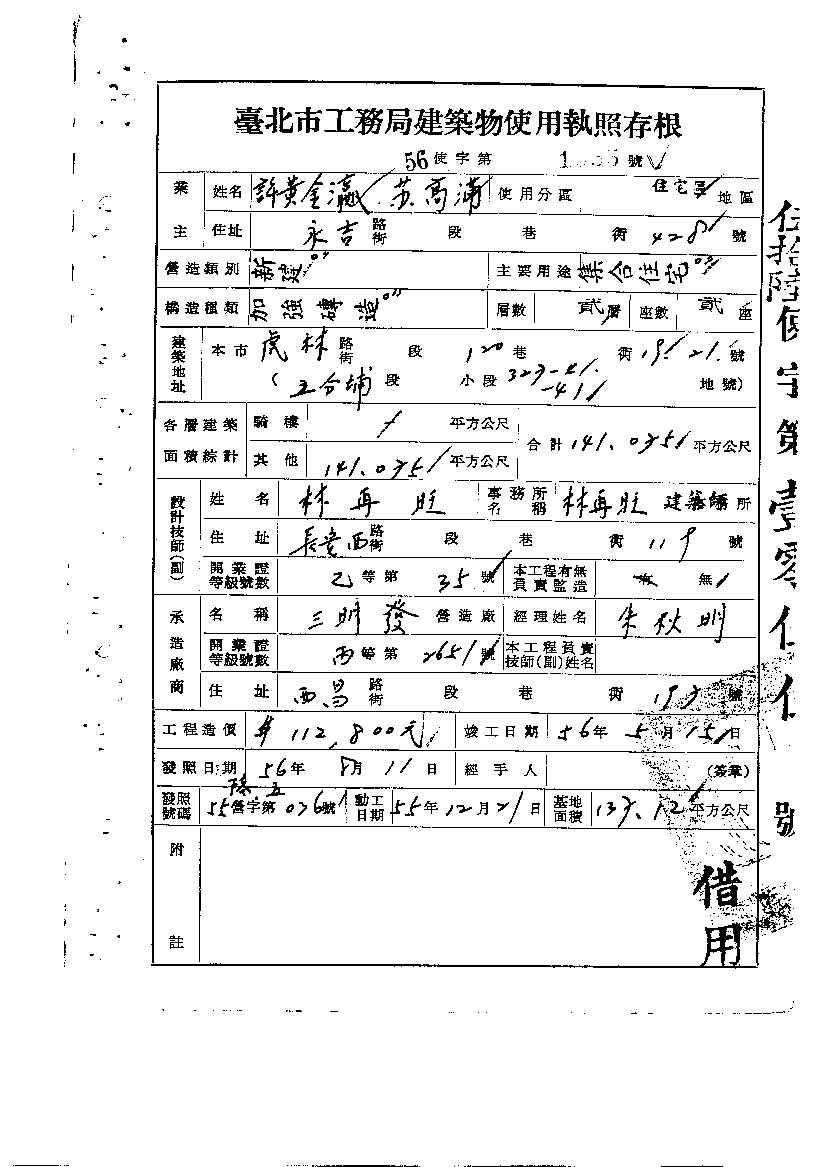 臺北市工務局建築物使用執照存根
56使字第 號
業主 姓名 許黃金瀛 苏高滿 使用分區 住宅區 地區
住址 永吉 路街 段 巷 街 428 號
營造類別 新建 主要用途 集合住宅
構造種類 加強磚造 層數 貳層 座數 貳座
建築地址 本市 虎林 路街 段 120巷 街 19.21號
(五分埔段 小段 323-21. -41 地號)
各層建築面積綜計 騎樓 / 平方公尺 合計 141.0351 平方公尺
其他 141.0351 平方公尺
設計技師(副) 姓名 林再旺 事務所名稱 林再旺 建築師所
住址 長安西 路街 段 巷 街 119 號
開業證等級號數 乙等第 35號 本工程有無員責監造 有 無
承造廠商 名稱 三明發 營造廠 經理姓名 朱秋明
開業證等級號數 丙等第 號 本工程員責技師(副)姓名
住址 西昌 路街 段 巷 街 號
工程造價 $112,800元 竣工日期 56年5月15日
發照日期 56年8月11日 經手人 (簽章)
發照號碼 55營字第036號 動工日期 55年12月21日 基地面積 平方公尺
附註
伍拾陸使字第壹零伍伍號
借用